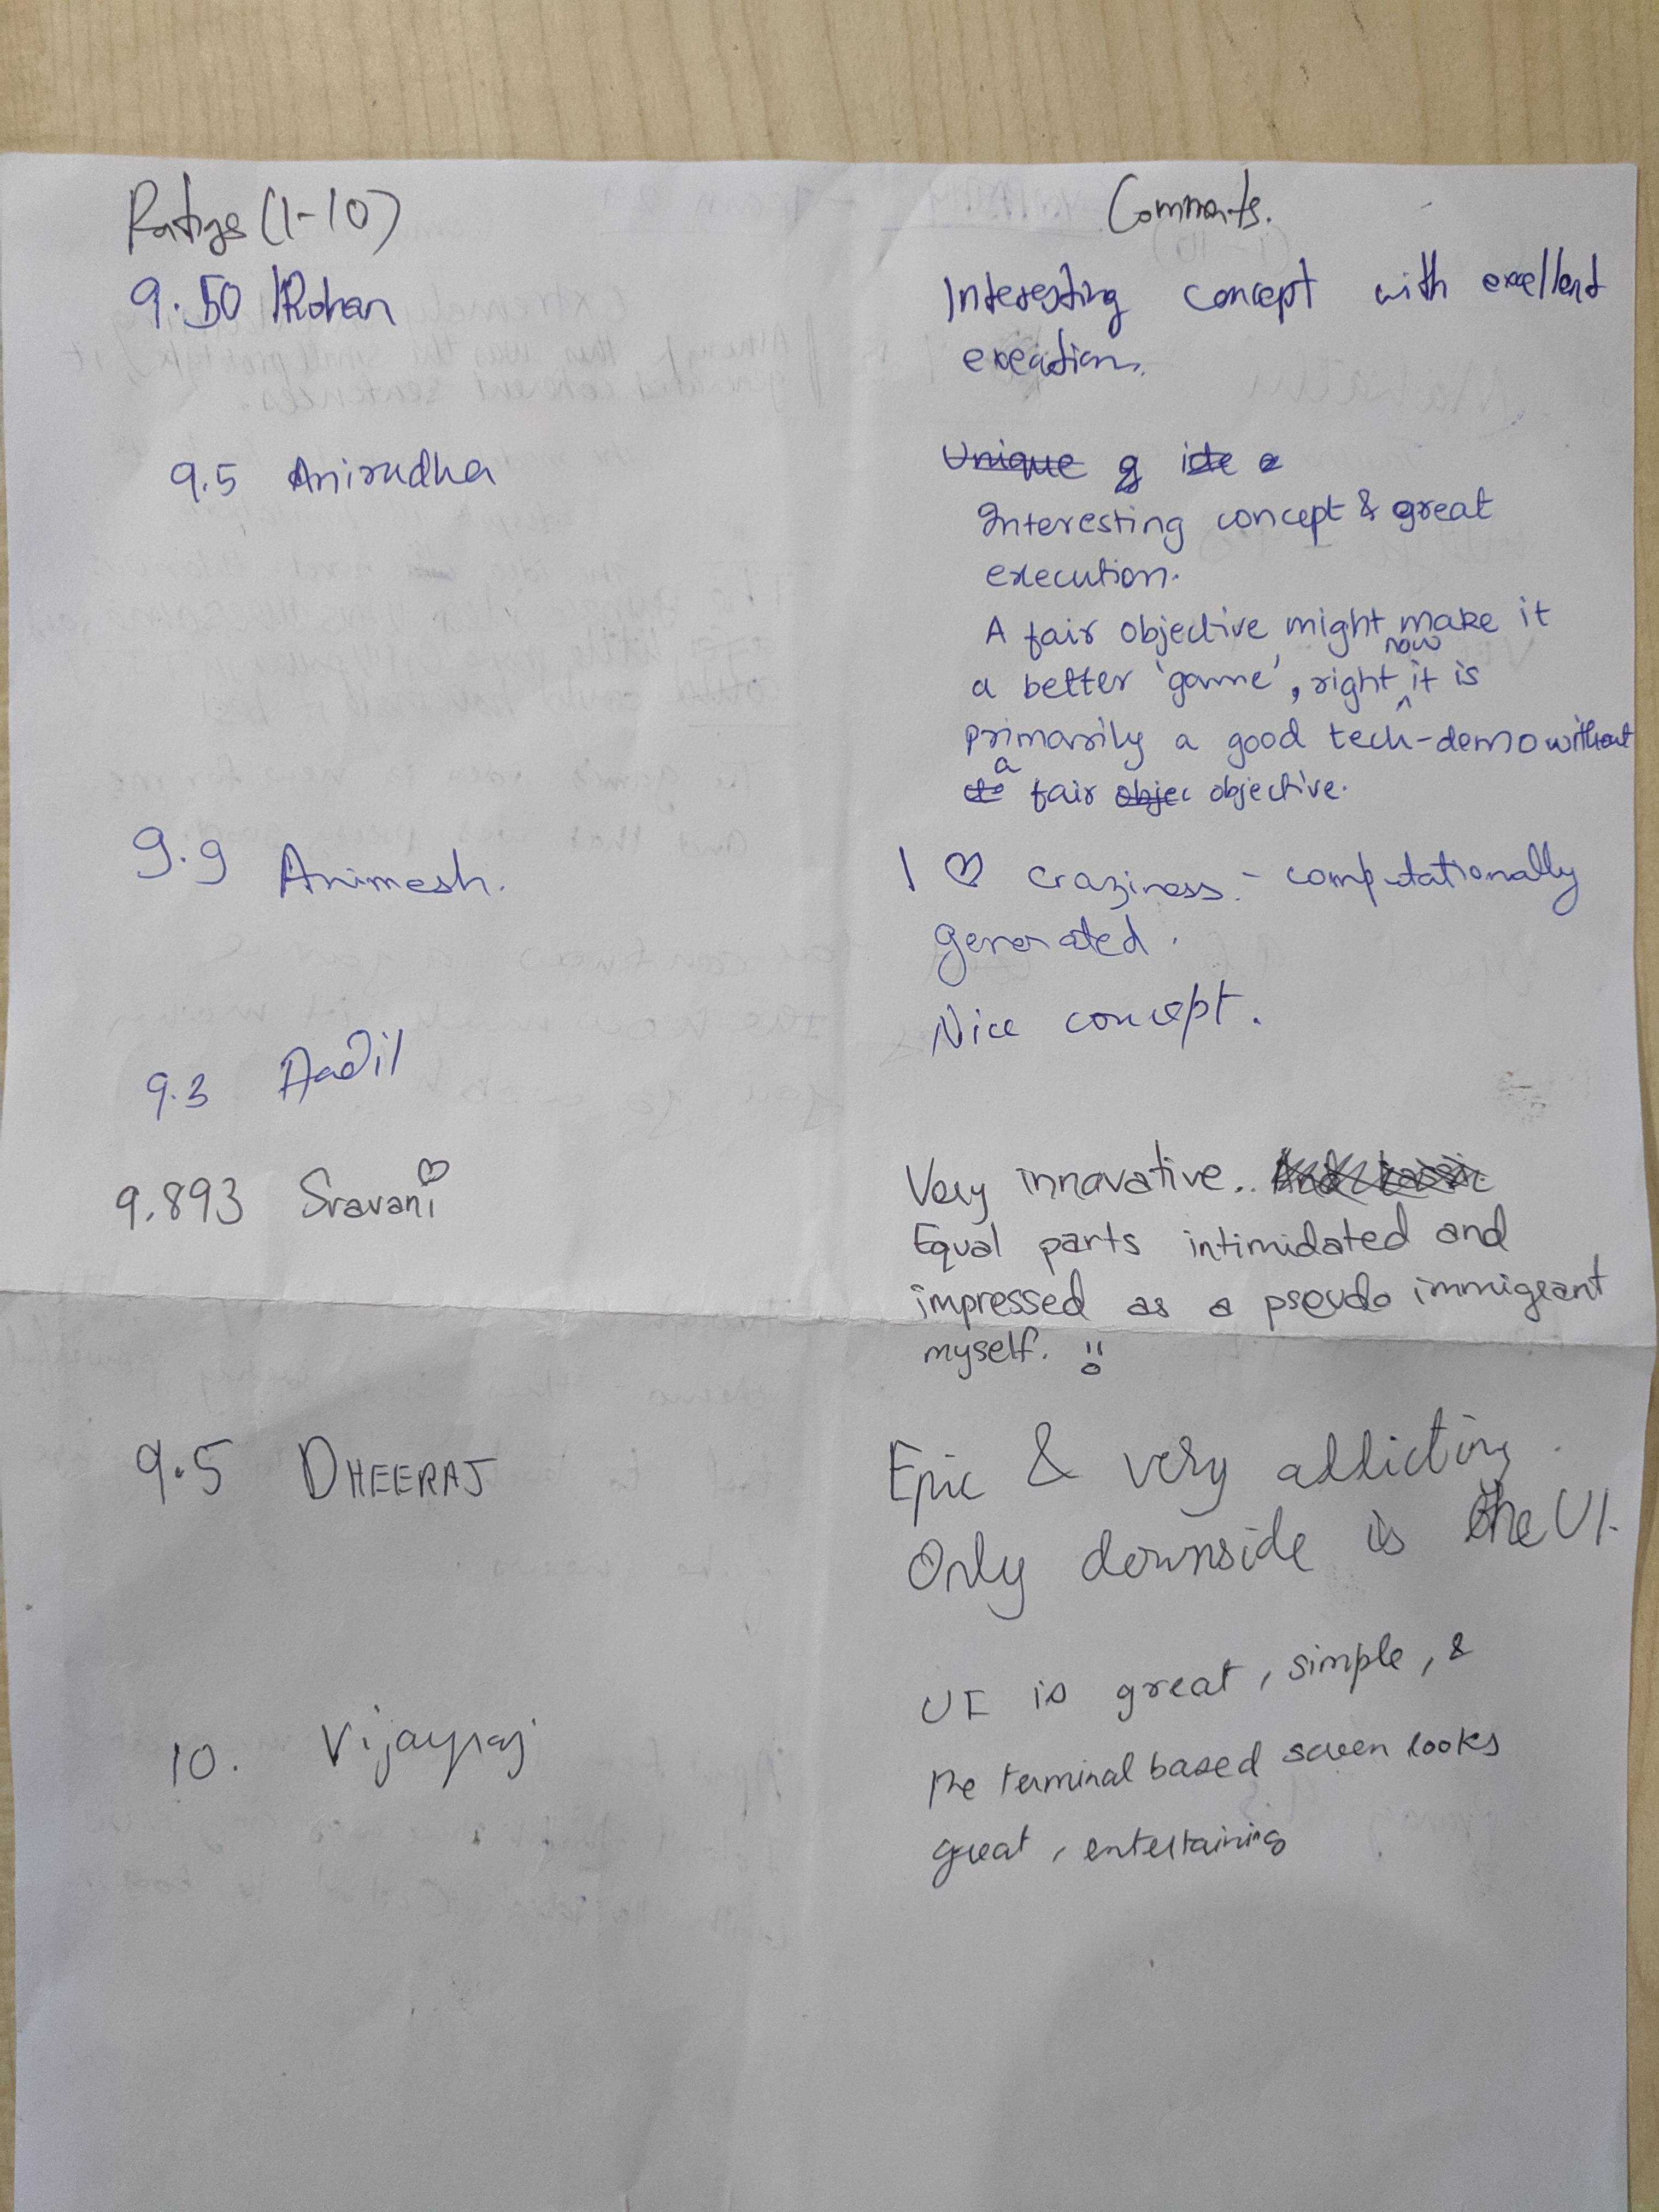 Ratings (1-10)
Comments.
9.50 Rohan
Interesting concept with excellent
execution.
9.5 Anirudha
Unique & ide
Interesting concept & great
execution.
A fair objective might make it
a better 'game', right now it is
primarily a good tech-demo without
a fair objec objective.
9.9 Animesh.
I ♡ craziness - computationally
generated.
Nice concept.
9.3 Aadil
9.893 Sravani ♡
Very innovative..
Equal parts intimidated and
impressed as a pseudo immigrant
myself.
9.5 DHEERAJ
Epic & very addicting.
Only downside is the UI.
10. Vijayraj
UI is great, simple, &
the terminal based screen looks
great, entertaining